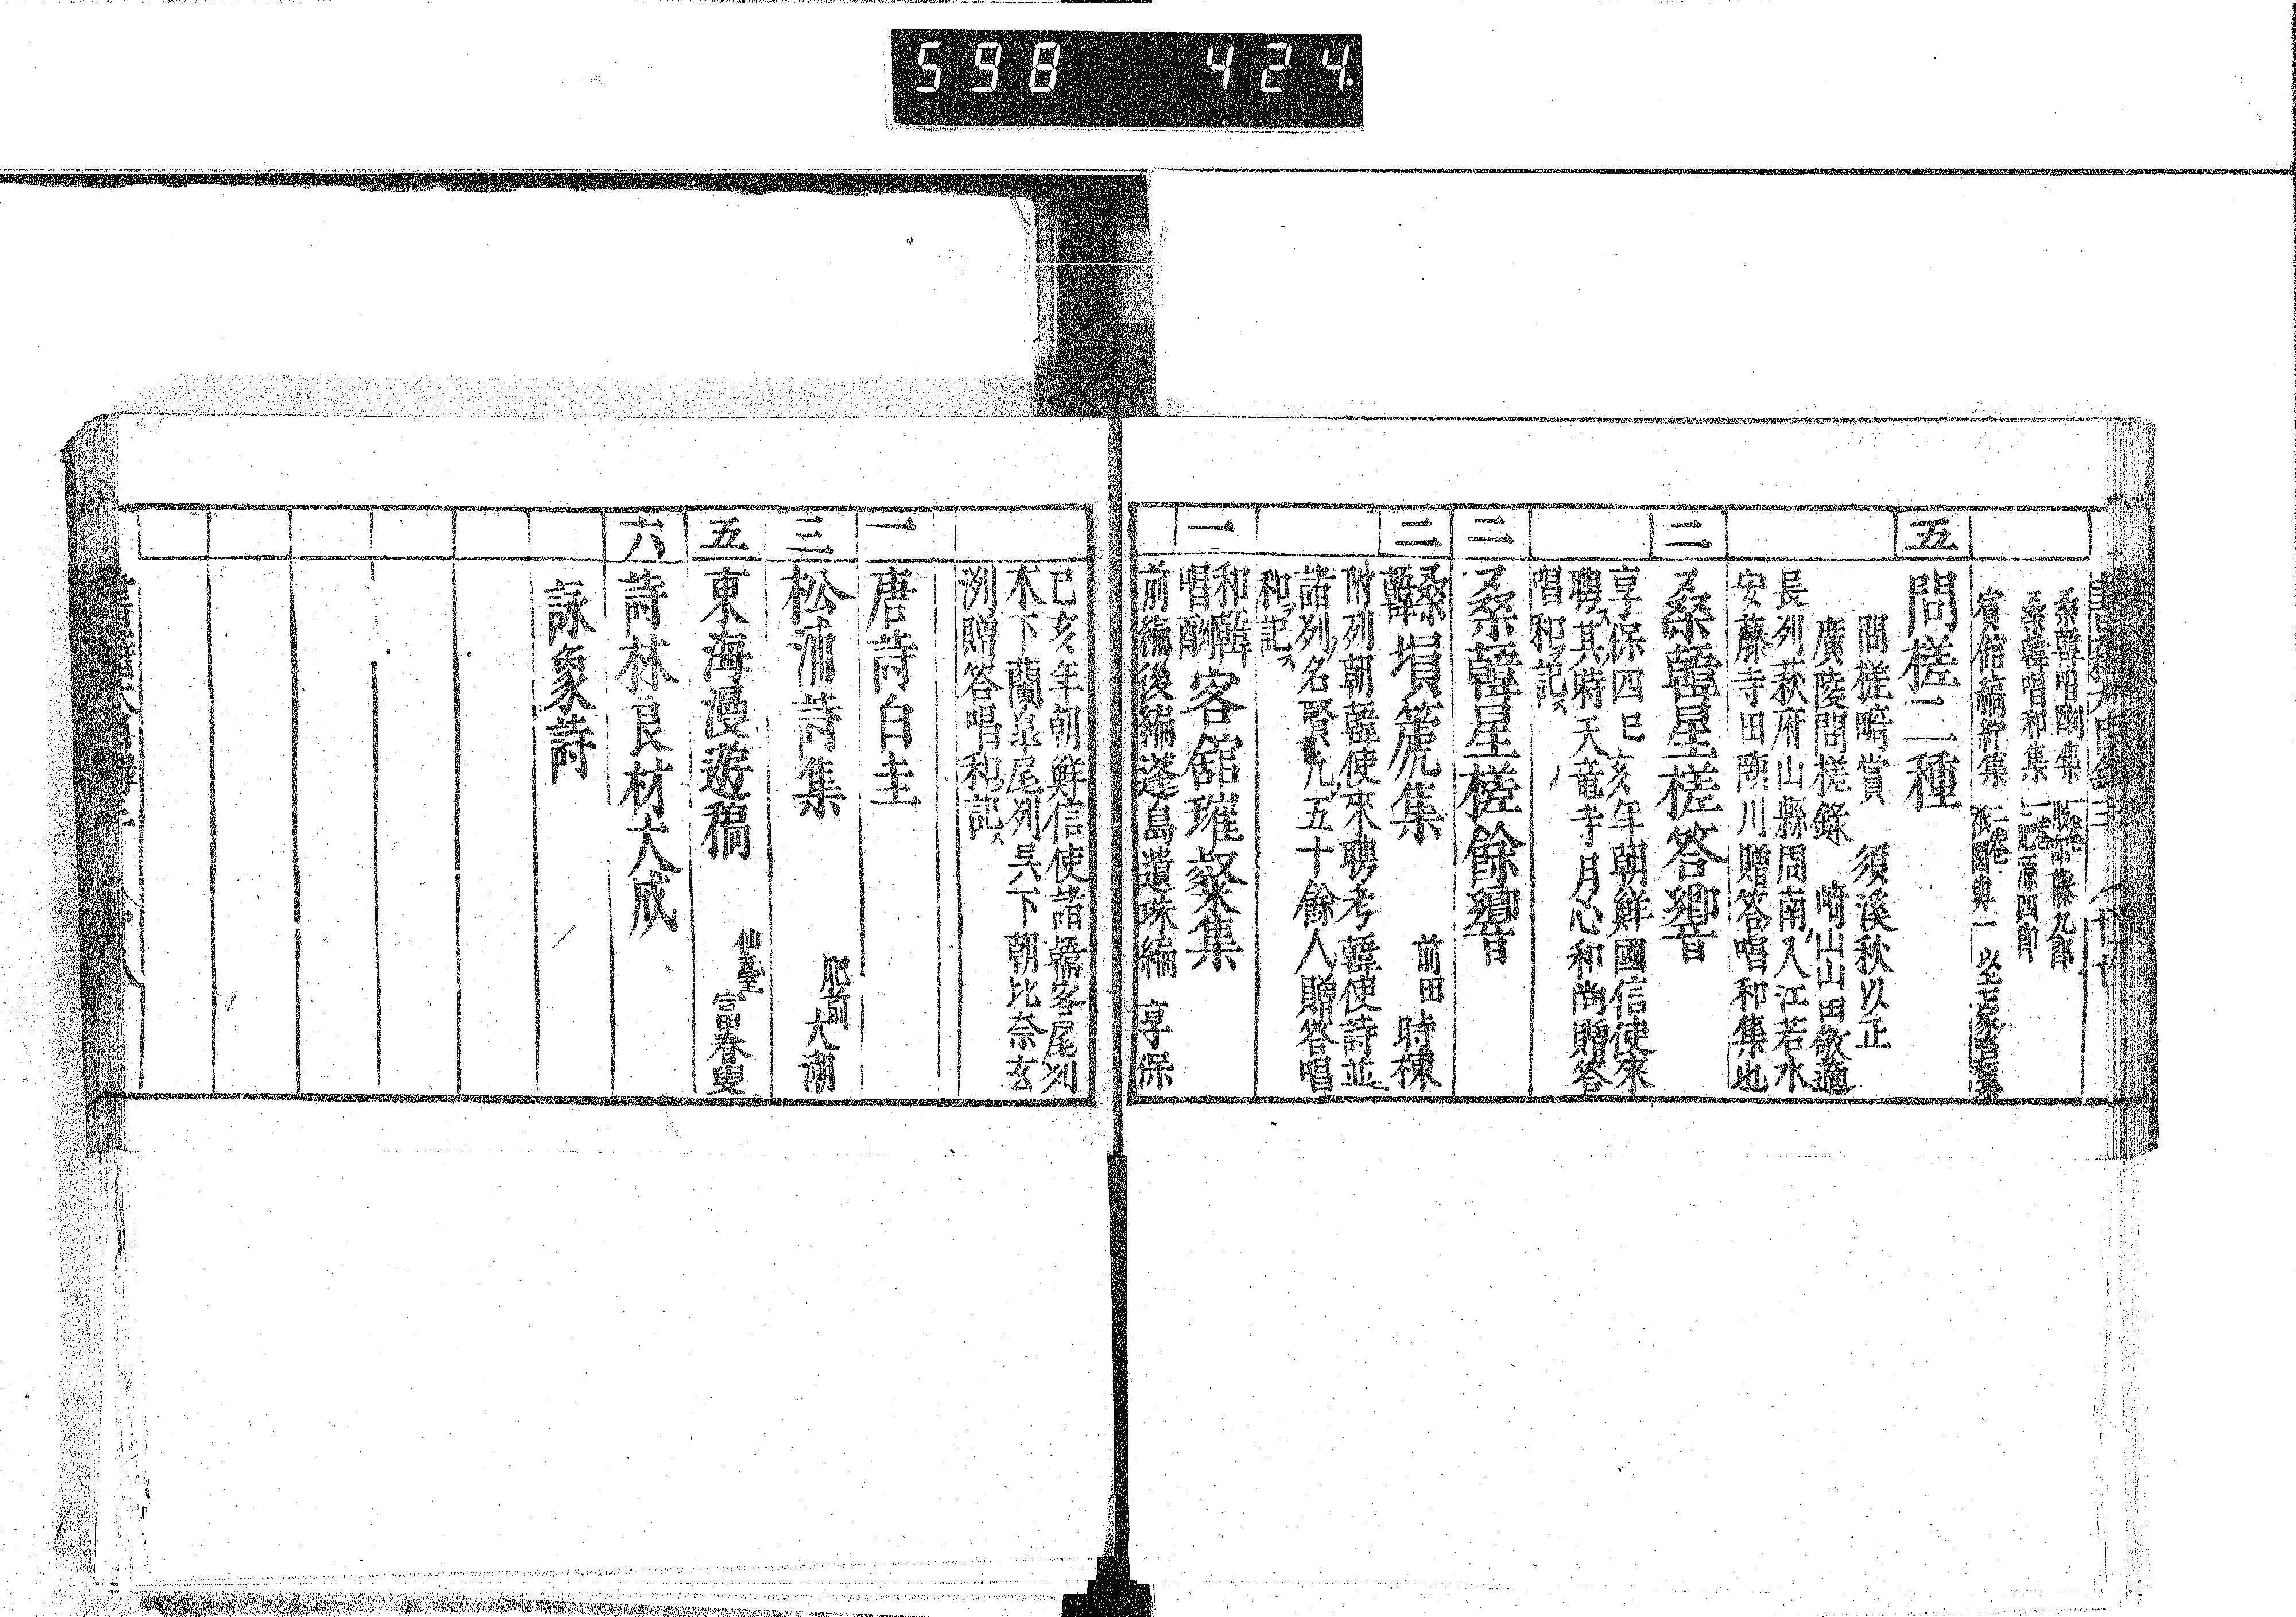 598 424.
桑韓唱酬集 一卷
桑韓唱和集 一卷 肥源四郎
賓館縞紵集 二卷
五 問槎二種
問槎畸賞 須溪秋以正
廣陵問槎錄 﨑山山田敬適
長列萩府山縣周南入江若水
安藤寺田臨川贈答唱和集也
二 桑韓星槎答響
享保四巳亥年朝鮮國信使來
聘ス其ノ時天竜寺月心和尚贈答
唱和ヲ記ス
二 桑韓星槎餘響
二 桑韓塤篪集 前田時棟
附列朝韓使來聘考韓使詩並ニ
諸列ノ名賢凡ソ五十餘人ノ贈答唱
和ヲ記ス
一 和韓唱酬客舘璀粲集
前編後編蓬島遺珠編 享保
己亥年朝鮮信使諸號客尾列
木下蘭皐尾列呉下朝比奈玄
洲贈答唱和ヲ記ス
一 唐詩白圭
三 松浦詩集 肥前 大潮
五 東海漫遊稿 仙臺 富春叟
六 詩林良材大成
詠象詩